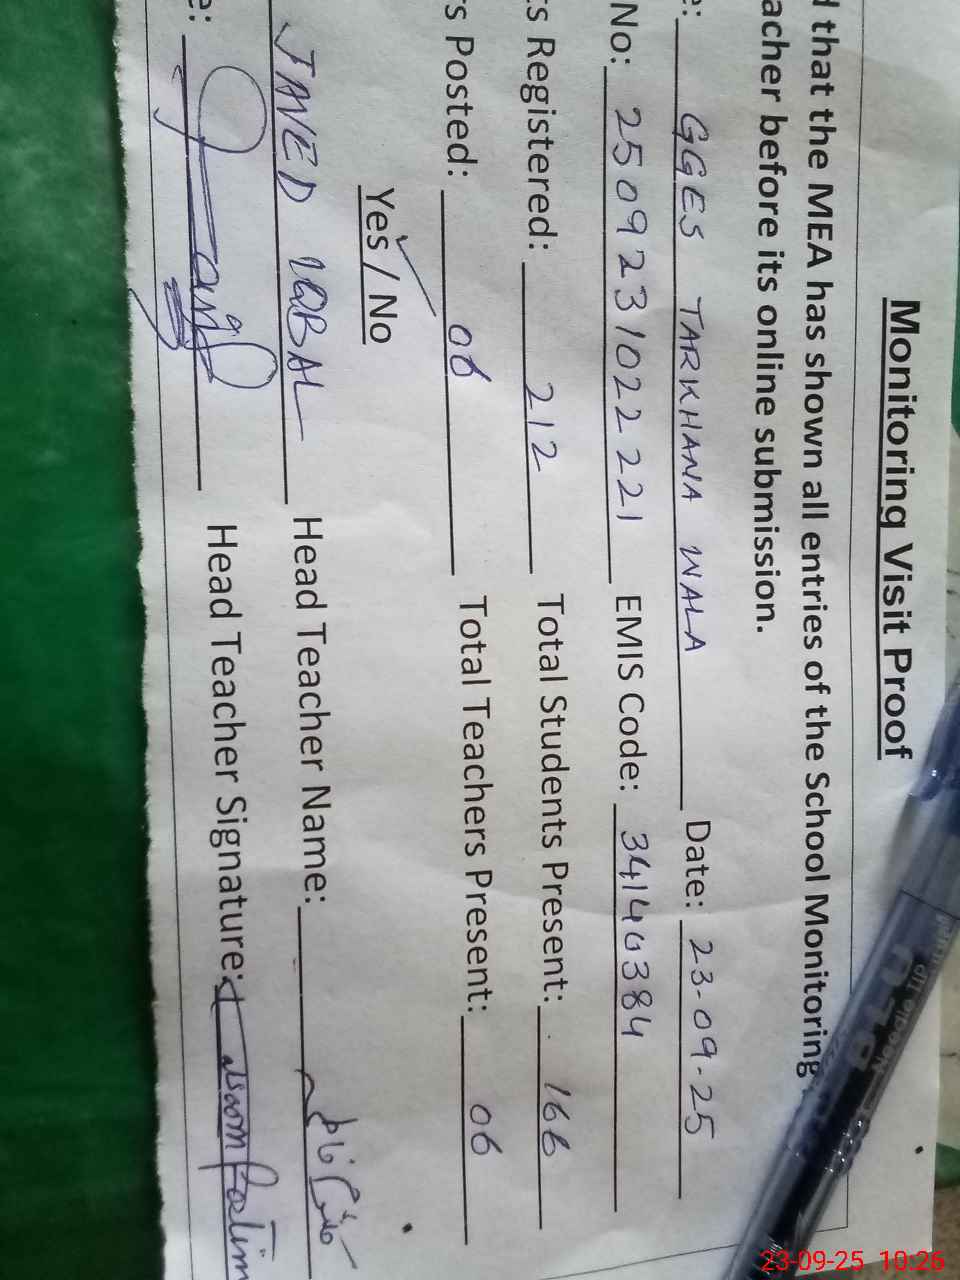 Monitoring Visit Proof
that the MEA has shown all entries of the School Monitoring
acher before its online submission.
e: GGES TARKHANA WALA Date: 23-09-25
No: 25092310222 21 EMIS Code: 34140384
s Registered: 212 Total Students Present: 166
s Posted: 06 Total Teachers Present: 06
Yes / No
JAVED IQBAL Head Teacher Name:
e: Head Teacher Signature:
Needle Tip
23-09-25 10:26